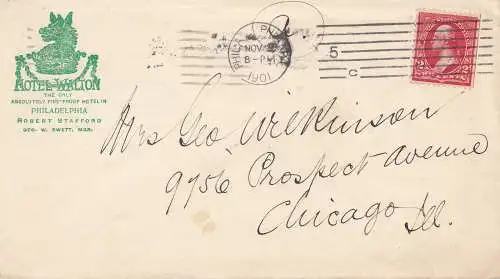 HOTEL WALTON
THE ONLY
ABSOLUTELY FIRE-PROOF HOTEL IN
PHILADELPHIA
ROBERT STAFFORD
GEO. W. SWETT, MGR.
NOV
8-PM
1901
5
C
2 2
TWO CENTS
Mrs Geo Wilkinson
9756 Prospect Avenue
Chicago Ill.